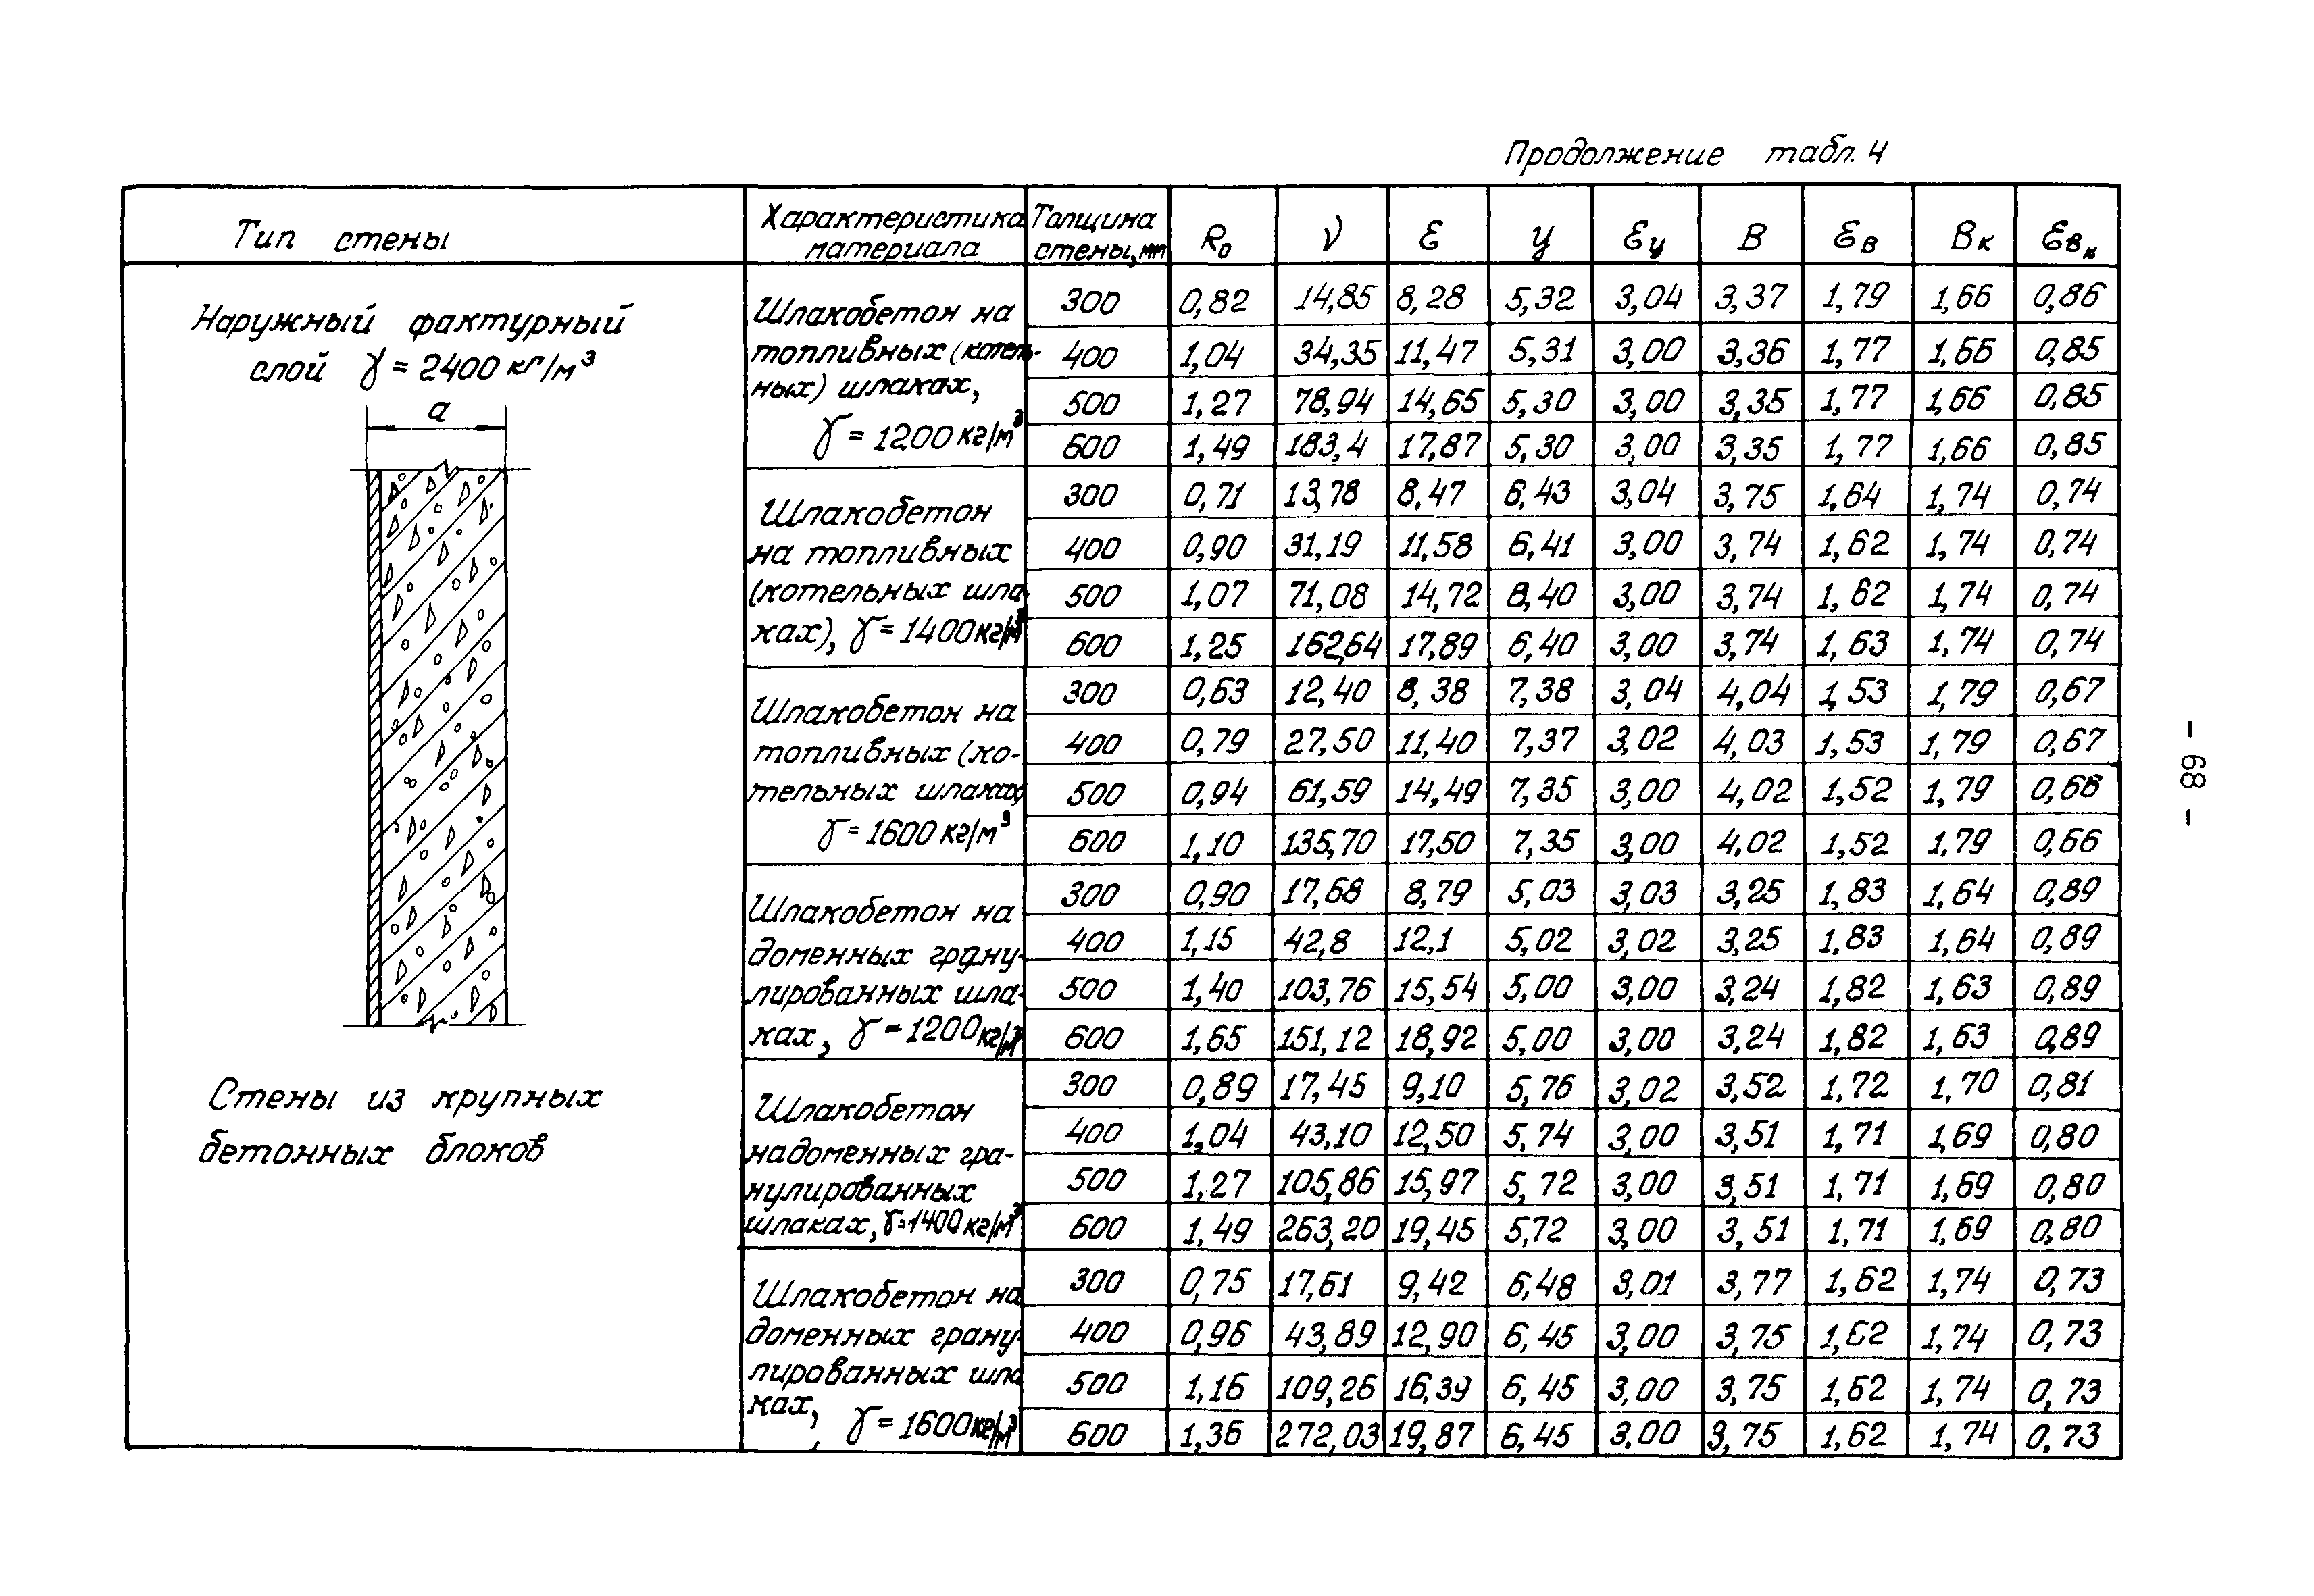 Продолжение табл. 4
Тип стены Характеристика материала Толщина стены, мм R₀ ν ε У εу В εв Вк εвк
Наружный фактурный
слой γ = 2400 кг/м³
а
Стены из крупных
бетонных блоков
Шлакобетон на
топливных (котель-
ных) шлаках,
γ = 1200 кг/м³
300 0,82 14,85 8,28 5,32 3,04 3,37 1,79 1,66 0,86
400 1,04 34,35 11,47 5,31 3,00 3,36 1,77 1,66 0,85
500 1,27 78,94 14,65 5,30 3,00 3,35 1,77 1,66 0,85
600 1,49 183,4 17,87 5,30 3,00 3,35 1,77 1,66 0,85
Шлакобетон
на топливных
(котельных шла-
ках), γ = 1400 кг/м³
300 0,71 13,78 8,47 6,43 3,04 3,75 1,64 1,74 0,74
400 0,90 31,19 11,58 6,41 3,00 3,74 1,62 1,74 0,74
500 1,07 71,08 14,72 6,40 3,00 3,74 1,62 1,74 0,74
600 1,25 162,64 17,89 6,40 3,00 3,74 1,63 1,74 0,74
Шлакобетон на
топливных (ко-
тельных шлаках)
γ = 1600 кг/м³
300 0,63 12,40 8,38 7,38 3,04 4,04 1,53 1,79 0,67
400 0,79 27,50 11,40 7,37 3,02 4,03 1,53 1,79 0,67
500 0,94 61,59 14,49 7,35 3,00 4,02 1,52 1,79 0,66
600 1,10 135,70 17,50 7,35 3,00 4,02 1,52 1,79 0,66
Шлакобетон на
доменных грану-
лированных шла-
ках, γ = 1200 кг/м³
300 0,90 17,68 8,79 5,03 3,03 3,25 1,83 1,64 0,89
400 1,15 42,8 12,1 5,02 3,02 3,25 1,83 1,64 0,89
500 1,40 103,76 15,54 5,00 3,00 3,24 1,82 1,63 0,89
600 1,65 151,12 18,92 5,00 3,00 3,24 1,82 1,63 0,89
Шлакобетон
на доменных гра-
нулированных
шлаках, γ=1400 кг/м³
300 0,89 17,45 9,10 5,76 3,02 3,52 1,72 1,70 0,81
400 1,04 43,10 12,50 5,74 3,00 3,51 1,71 1,69 0,80
500 1,27 105,86 15,97 5,72 3,00 3,51 1,71 1,69 0,80
600 1,49 263,20 19,45 5,72 3,00 3,51 1,71 1,69 0,80
Шлакобетон на
доменных грану-
лированных шла
ках, γ = 1600 кг/м³
300 0,75 17,61 9,42 6,48 3,01 3,77 1,62 1,74 0,73
400 0,96 43,89 12,90 6,45 3,00 3,75 1,62 1,74 0,73
500 1,16 109,26 16,39 6,45 3,00 3,75 1,62 1,74 0,73
600 1,36 272,03 19,87 6,45 3.00 3,75 1,62 1,74 0,73
- 68 -